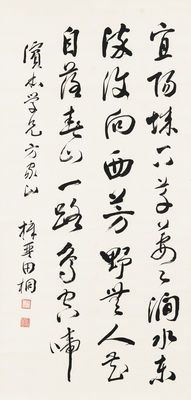 宜阳城下草萋〻澗水東
流復向西芳野無人花
自落春山一路鳥空啼
濱本学兄方家正 梓琴田桐